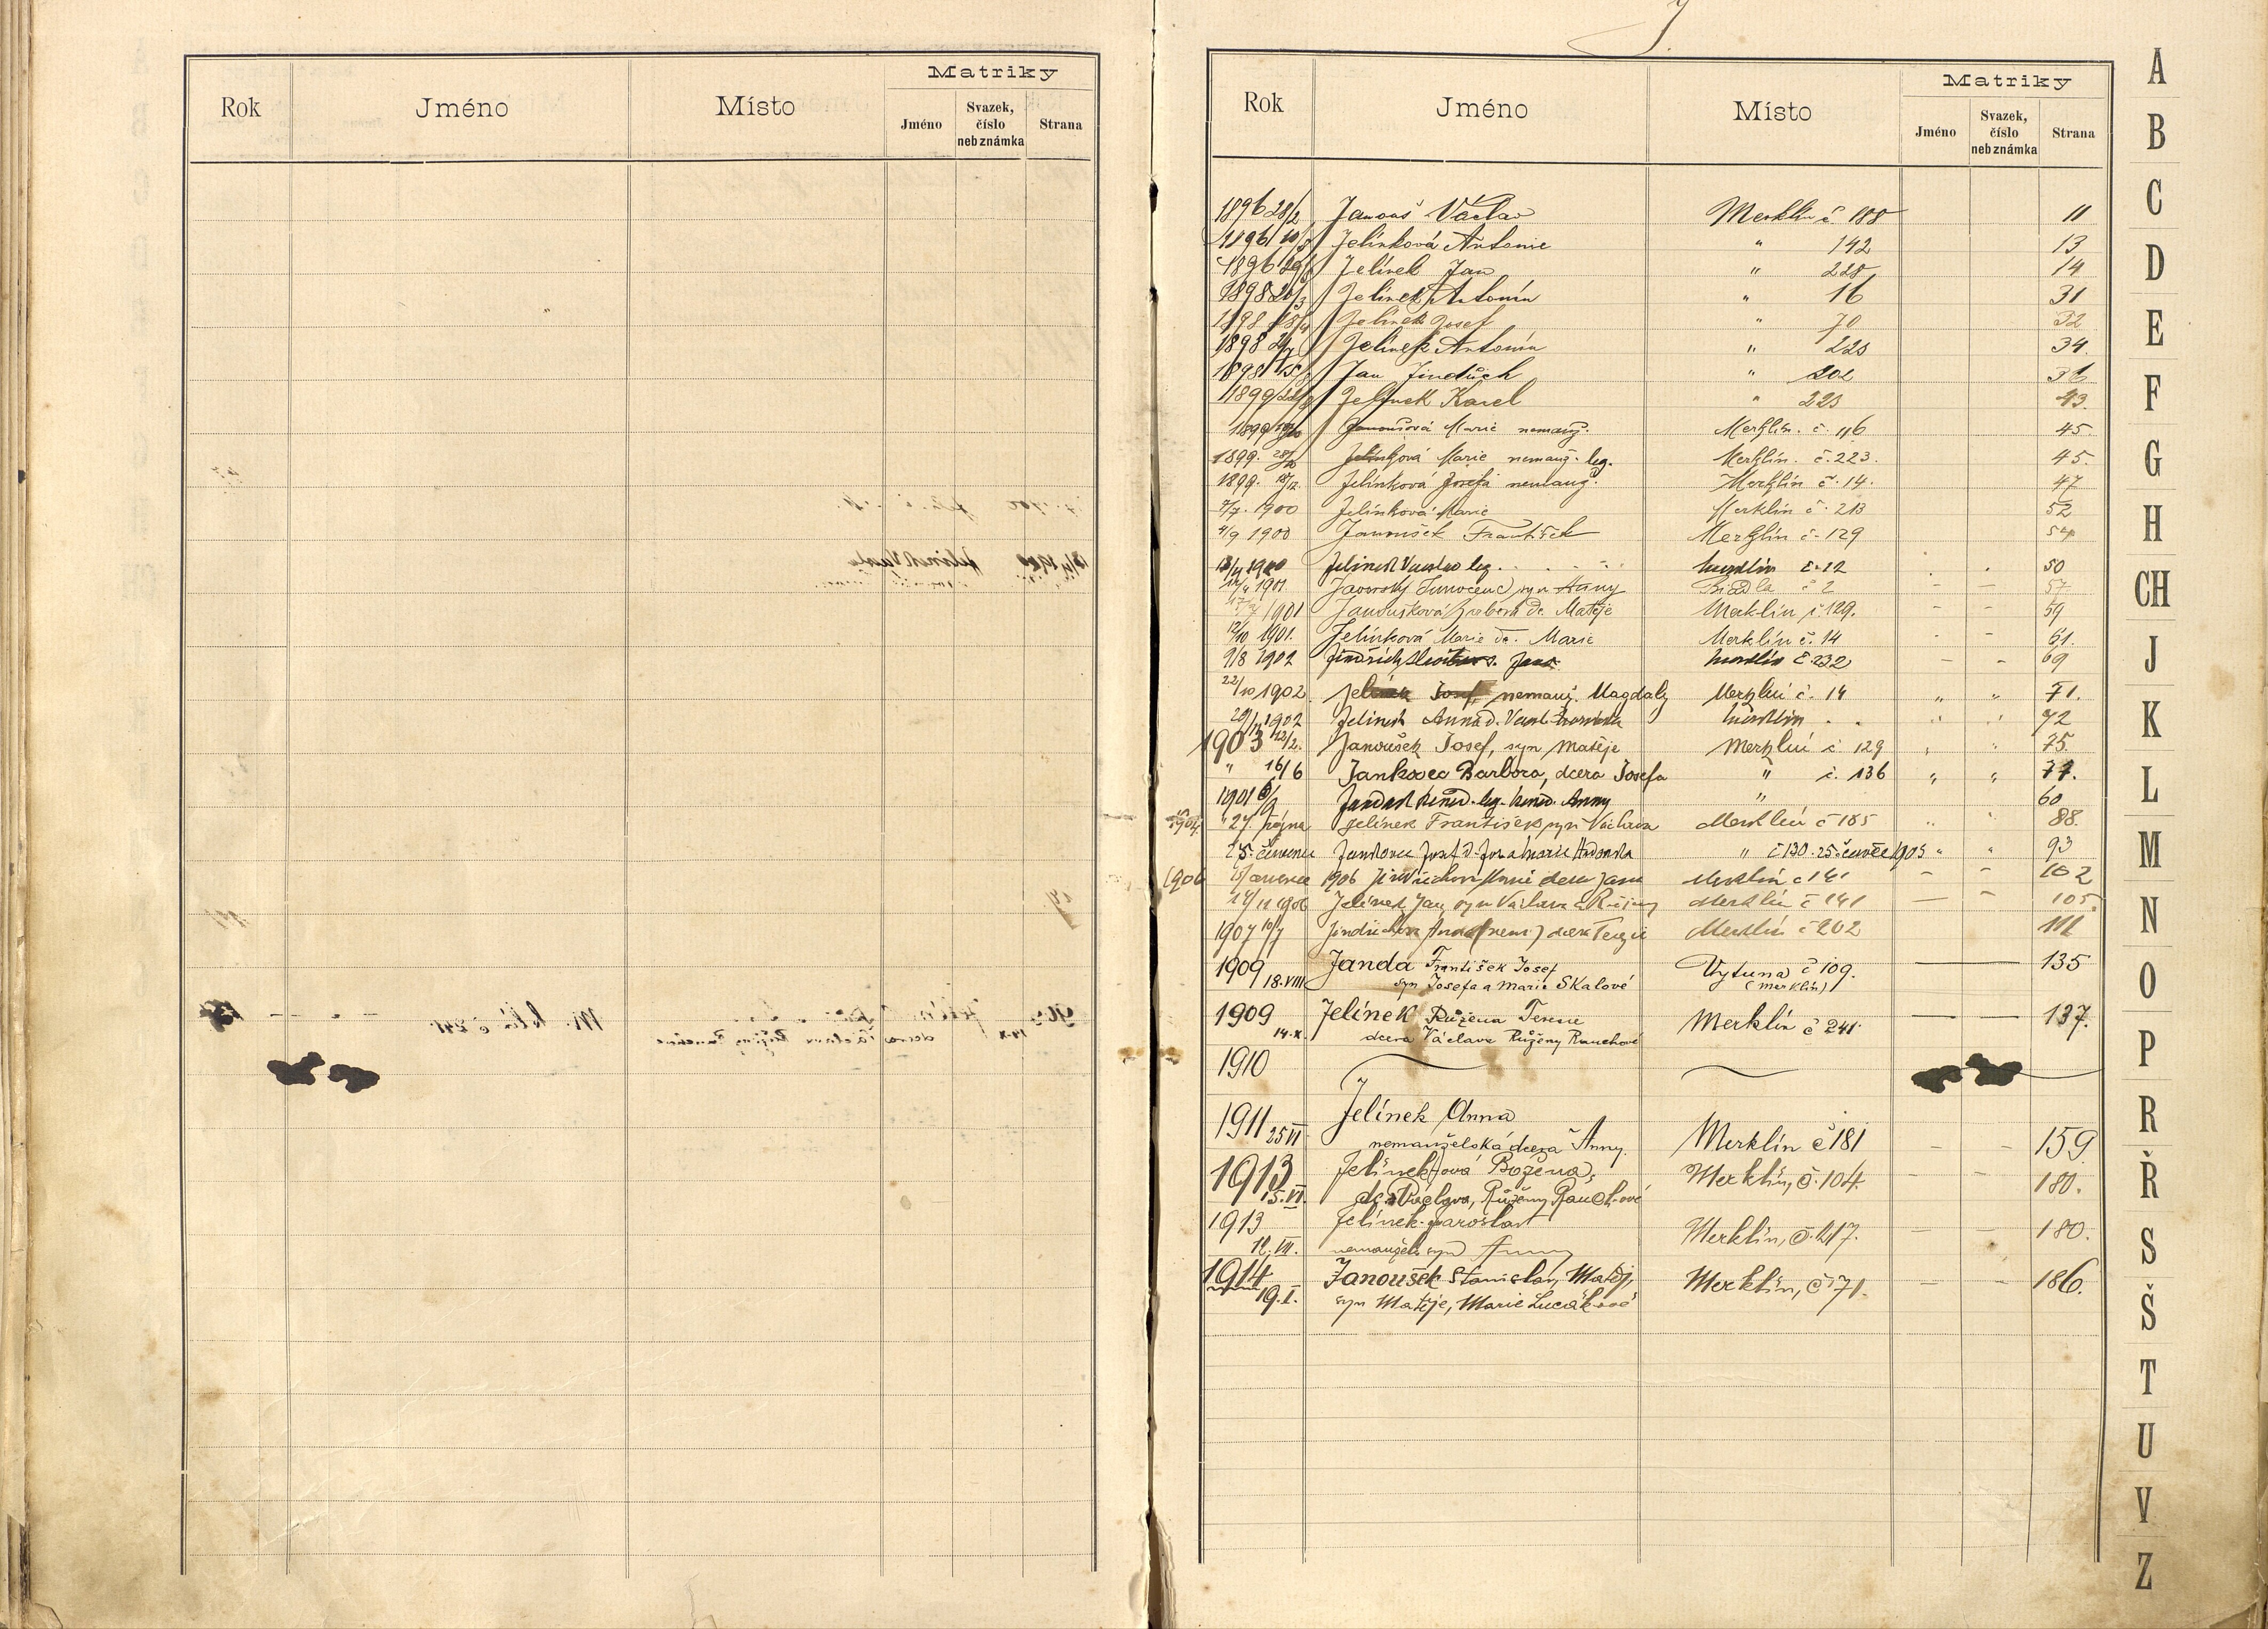 Rok Jméno Místo Matriky
Jméno Svazek, číslo neb známka Strana
J.
Rok Jméno Místo Matriky
Jméno Svazek, číslo neb známka Strana
1896 28/2 Janouš Václav Merklín č. 188 11
1896 Jelínková Antonie " 142 13
1896 Jelínek Jan " 228 14
1898 20/3 Jelínek Antonín " 16 31
1898 Jelínek Josef " 70 32
1898 Jelínek Antonín " 223 34
1898 Jan Jindřich " 202 36
1899 Jelínek Karel " 223 43.
1899 Janoušová Marie nemanž. Merklín. č. 116 45.
1899. Jelínková Marie nemanž. leg. Merklín. č. 223. 45.
1899. 18/12. Jelínková Josefa nemanž. Merklín č. 14. 47
7/7. 1900 Jelínková Marie Merklín č. 213 52
4/9 1900 Janoušek František Merklín č. 129 54
1900 Jelínek Václav leg. Merklín č. 12 50
1901 Javorský Innocenc, syn Anny č 2 57
1901 Janoušková Barbora dc. Matěje Merklín č. 129. 59
12/10 1901. Jelínková Marie dc. Marie Merklín č. 14 61.
9/8 1902 Jindřich s. Jana Merklín č. 232 69
22/10 1902. Jelínek Josef, nemanž. Magdaly Merklín č. 14 " " 71.
1902 Jelínek Anna d. Václ. Merklín 72
1903 12/2. Janoušek Josef, syn Matěje Merklín č. 129 " " 75.
" 16/6 Jankovec Barbora, dcera Josefa " č. 136 " " 77.
1901 Anny " 60
1904 27. října Jelínek František, syn Václava Merklín č 185 " " 88.
25. července Jankovec " č 130. 25. července 1905 " " 93
1906 července 1906 Jindřichová Marie dcera Jana Merklín č 161 102
14/11 1906 Jelínek Jan, syn Václava a Růženy Merklín č 141 105.
1907 10/7 Jindřichová Anna (nem.) dcera Terezie Merklín č 202 111
1909 18.VIII Janda František Josef Vytuna č 109. 135
syn Josefa a Marie Skalové (Merklín)
1909 14.X. Jelínek Růžena Terezie Merklín č 241. 137.
dcera Václava Růženy Rauchové
1910
1911 25 VI Jelínek Anna Merklín č 181 159
nemanželská dcera Anny.
1913 15.VI. Jelínek(ová) Božena, Merklín, č. 104. 180.
dc. Václava, Růženy Rauchové
1913 12.VII. Jelínek Jaroslav Merklín, č. 217. 180.
nemanžel. syn Anny
1914 19.I. Janoušek Stanislav Matěj, Merklín, č 71. 186.
syn Matěje, Marie Lucákové
A
B
C
D
E
F
G
H
CH
J
K
L
M
N
O
P
R
Ř
S
Š
T
U
V
Z